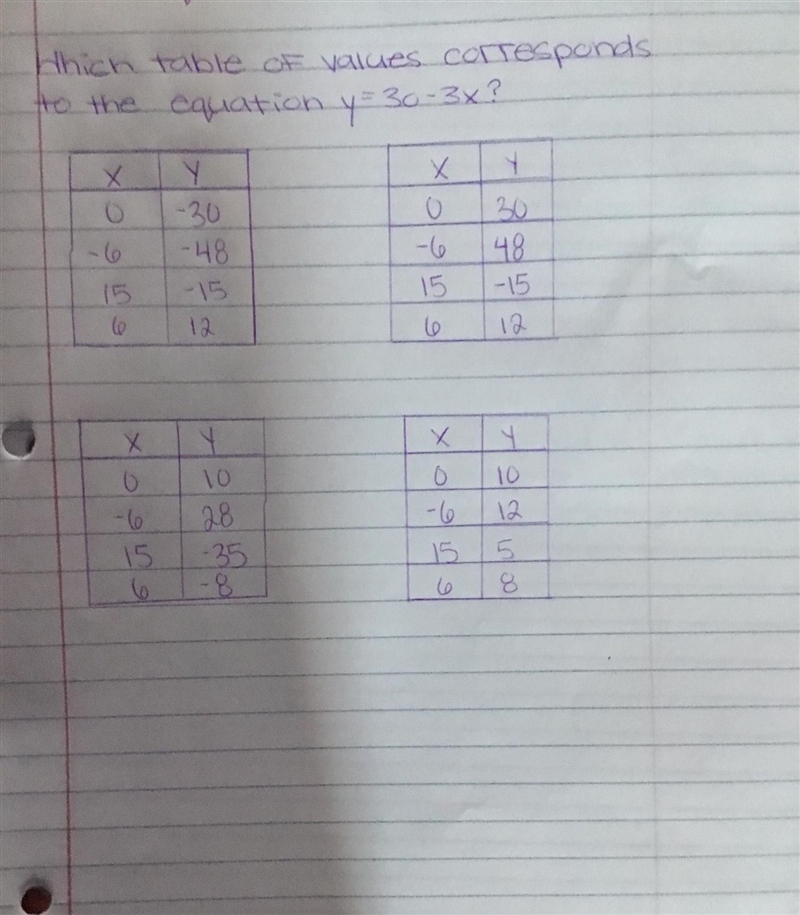 Which table of values corresponds
to the equation y=30-3x?
X Y
0 -30
-6 -48
15 -15
6 12
X Y
0 30
-6 48
15 -15
6 12
X Y
0 10
-6 28
15 -35
6 -8
X Y
0 10
-6 12
15 5
6 8